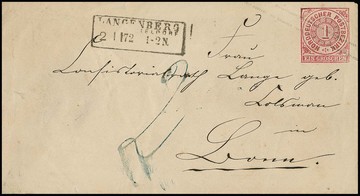 LANGENBERG
2 1 172 1-2N.
NORDDEUTSCHER POSTBEZIRK
1
EIN GROSCHEN
Frau
Consistorialrath Lange geb.
in
Bonn.